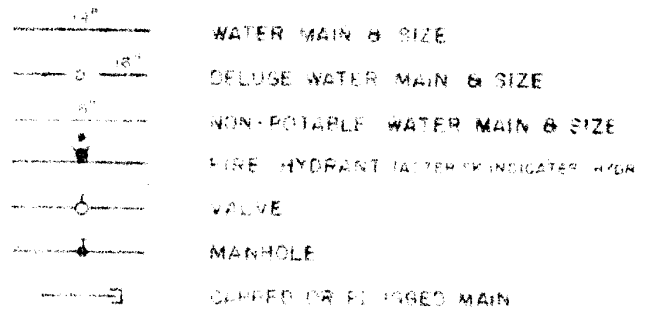 14"
WATER MAIN & SIZE
18"
DELUGE WATER MAIN & SIZE
NON-POTABLE WATER MAIN & SIZE
FIRE HYDRANT (ASTERISK INDICATES HYDR
VALVE
MANHOLE
CAPPED OR PLUGGED MAIN